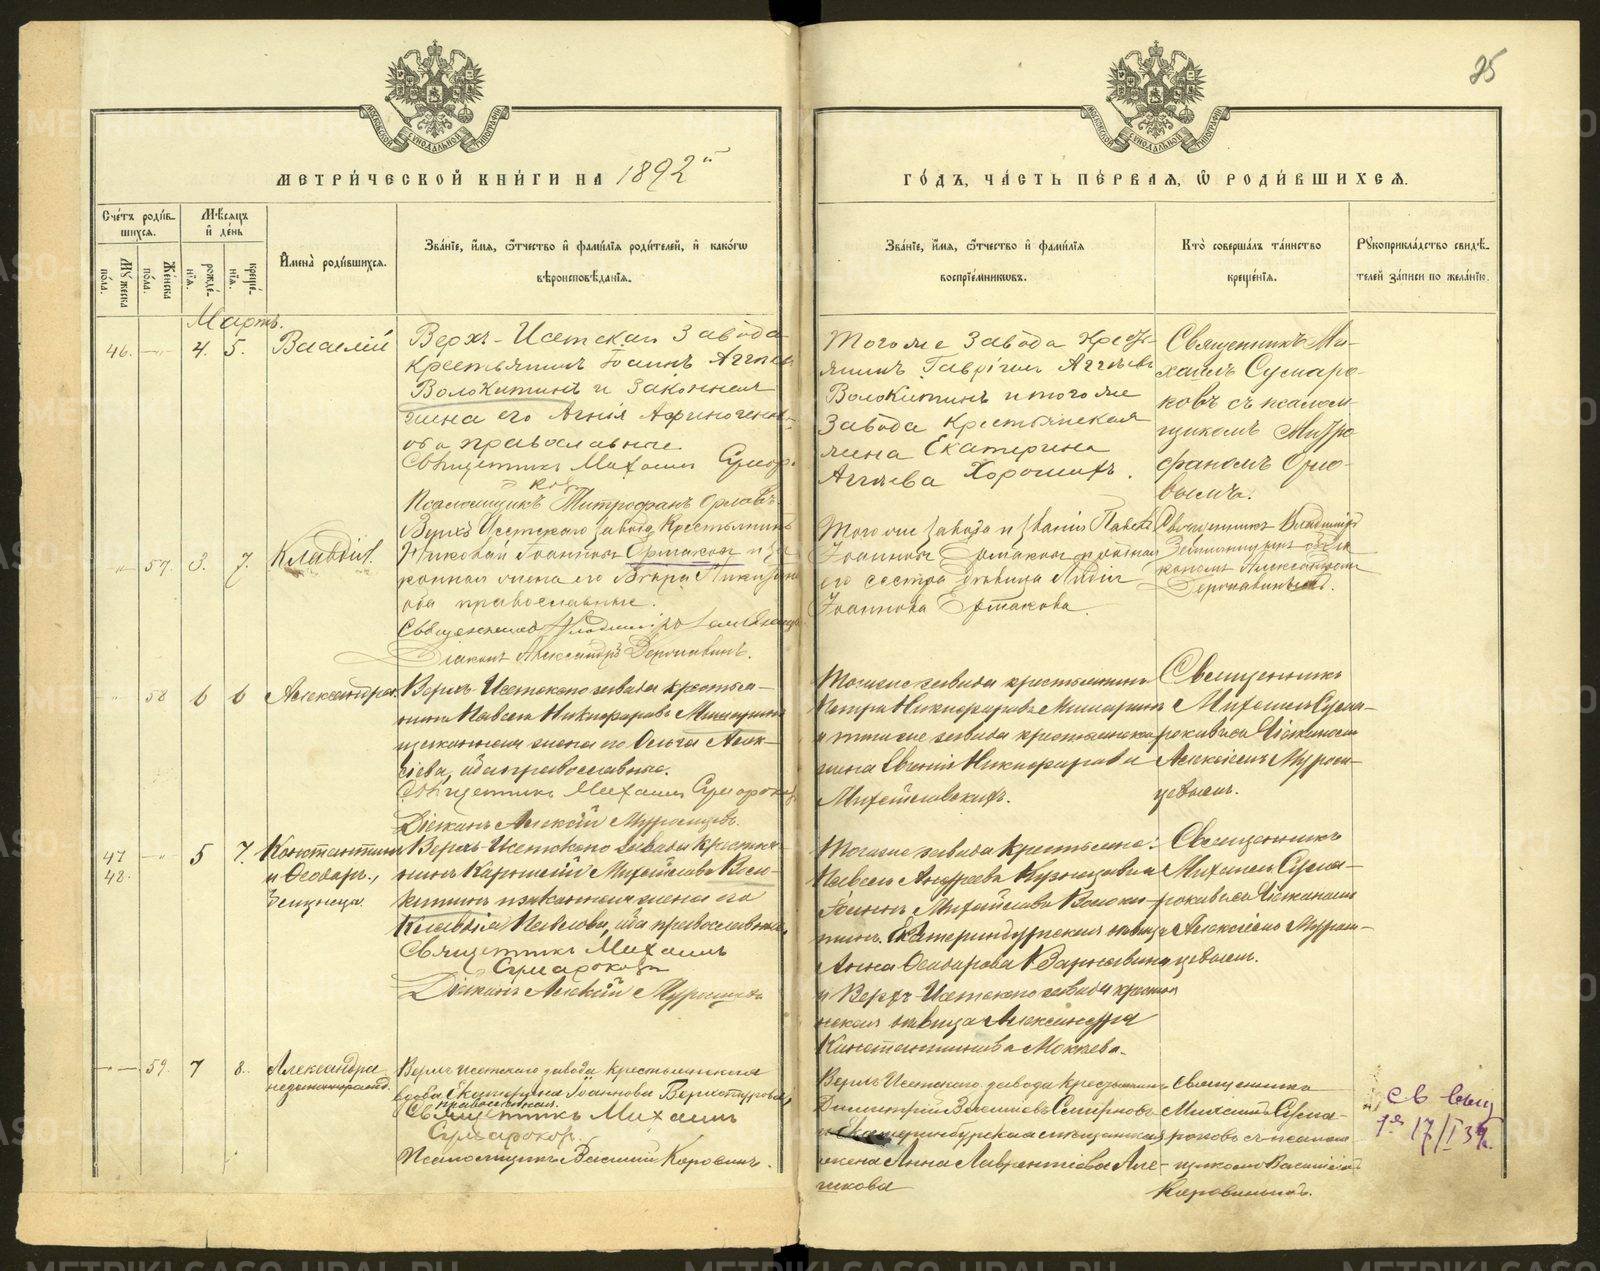 25
МОСКОВСКОЙ СѴНОДАЛЬНОЙ ТИПОГРАФІИ
МОСКОВСКОЙ СѴНОДАЛЬНОЙ ТИПОГРАФІИ
МЕТРИ́ЧЕСКОЙ КНИ́ГИ НА 1892й
ГО́ДЪ, ЧА́СТЬ ПЕ́РВАЯ, Ѡ РОДИ́ВШИХСЯ.
Сче́тъ роди́в-
шихся.
Му́жеска по́ла.
Же́нска по́ла.
Мѣ́сяцъ
и де́нь
рожде́нія.
креще́нія.
Имена̀ роди́вшихся.
Зва́ніе, и́мя, ѻ́тчество и фами́лія роди́телей, и како́гѡ
вѣроисповѣ́данія.
Зва́ніе, и́мя, ѻ́тчество и фами́лія
воспріе́мниковъ.
Кто̀ соверша́лъ та́инство
креще́нія.
Рукоприкла́дство свидѣ́-
телей за́писи по жела́нію.
Мартъ.
46. —"— 4. 5. Василій
Верхъ-Исетскаго Завода
крестьянинъ Іоаннъ Аггѣевъ
Волокитинъ и Законная
жена его Агнія Афиногенова
оба православные
Священникъ Михаилъ Сумаро-
ковъ
Псаломщикъ Митрофанъ Орловъ
Тогоже Завода Кресть-
янинъ Гавріилъ Аггѣевъ
Волокитинъ и тогоже
Завода Крестьянская
жена Екатерина
Аггѣева Хорошихъ.
Священникъ Ми-
хаилъ Сумаро-
ковъ съ псалом-
щикомъ Митро-
фаномъ Орло-
вымъ.
" 57. 3. 7. Клавдія.
Верхъ Исетскаго завода Крестьянинъ
Николай Іоанновъ Ермаковъ и за-
конная жена его Вѣра Никитина
оба православные.
Священникъ Владиміръ
Діаконъ Александръ Державинъ.
Того же завода и званія Павелъ
Іоанновъ Ермаковъ и родная
его сестра дѣвица Лидія
Іоаннова Ермакова.
Священникъ Владиміръ
съ діа-
кономъ Александромъ
Державинымъ.
" 58 6 6 Александра
Верхъ-Исетскаго завода крестья-
нинъ Павелъ Никифоровъ
и законная жена его Ольга Алек-
сіева, оба православные.
Священникъ Михаилъ Сумароковъ
Діаконъ Алексій Муромцевъ.
Тогоже завода крестьянинъ
Петръ Никифоровъ
и тогоже завода крестьянская
жена Евгенія Никифорова
Михайловскихъ.
Священникъ
Михаилъ Сума-
роковъ съ Діакономъ
Алексіемъ Муром-
цевымъ.
47 —"— 5 7. Константинъ
48. и Ѳеодоръ,
близнецы.
Верхъ-Исетскаго завода крестья-
нинъ Михайловъ Воло-
китинъ и законная жена его
Клавдія Павлова, оба православные.
Священникъ Михаилъ
Сумароковъ
Діаконъ Алексій Муромцевъ
Тогоже завода крестьяне:
Павелъ Андреевъ Кузнецовъ и
Іоаннъ Михайловъ Волоки-
тинъ. Екатеринбургская дѣвица
Анна Ѳеодорова
и Верхъ-Исетскаго завода крестьян-
ская дѣвица Александра
Константинова Мокѣева.
Священникъ
Михаилъ Сума-
роковъ съ Діакономъ
Алексіемъ Муром-
цевымъ.
—"— 59. 7 8. Александра
незаконнорожд.
Верхъ Исетскаго завода крестьянская
вдова Екатерина Іоаннова
православная.
Священникъ Михаилъ
Сумароковъ
Псаломщикъ Василій Коровинъ.
Верхъ Исетскаго завода крестьянинъ
Димитрій Васильевъ Смирновъ
и Екатеринбургская мѣщанская
жена Анна Лаврентіева
Священникъ
Михаилъ Сума-
роковъ съ псалом-
щикомъ Василіемъ
Коровинымъ.
17/I 39
METRIKI.GASO-URAL.RU